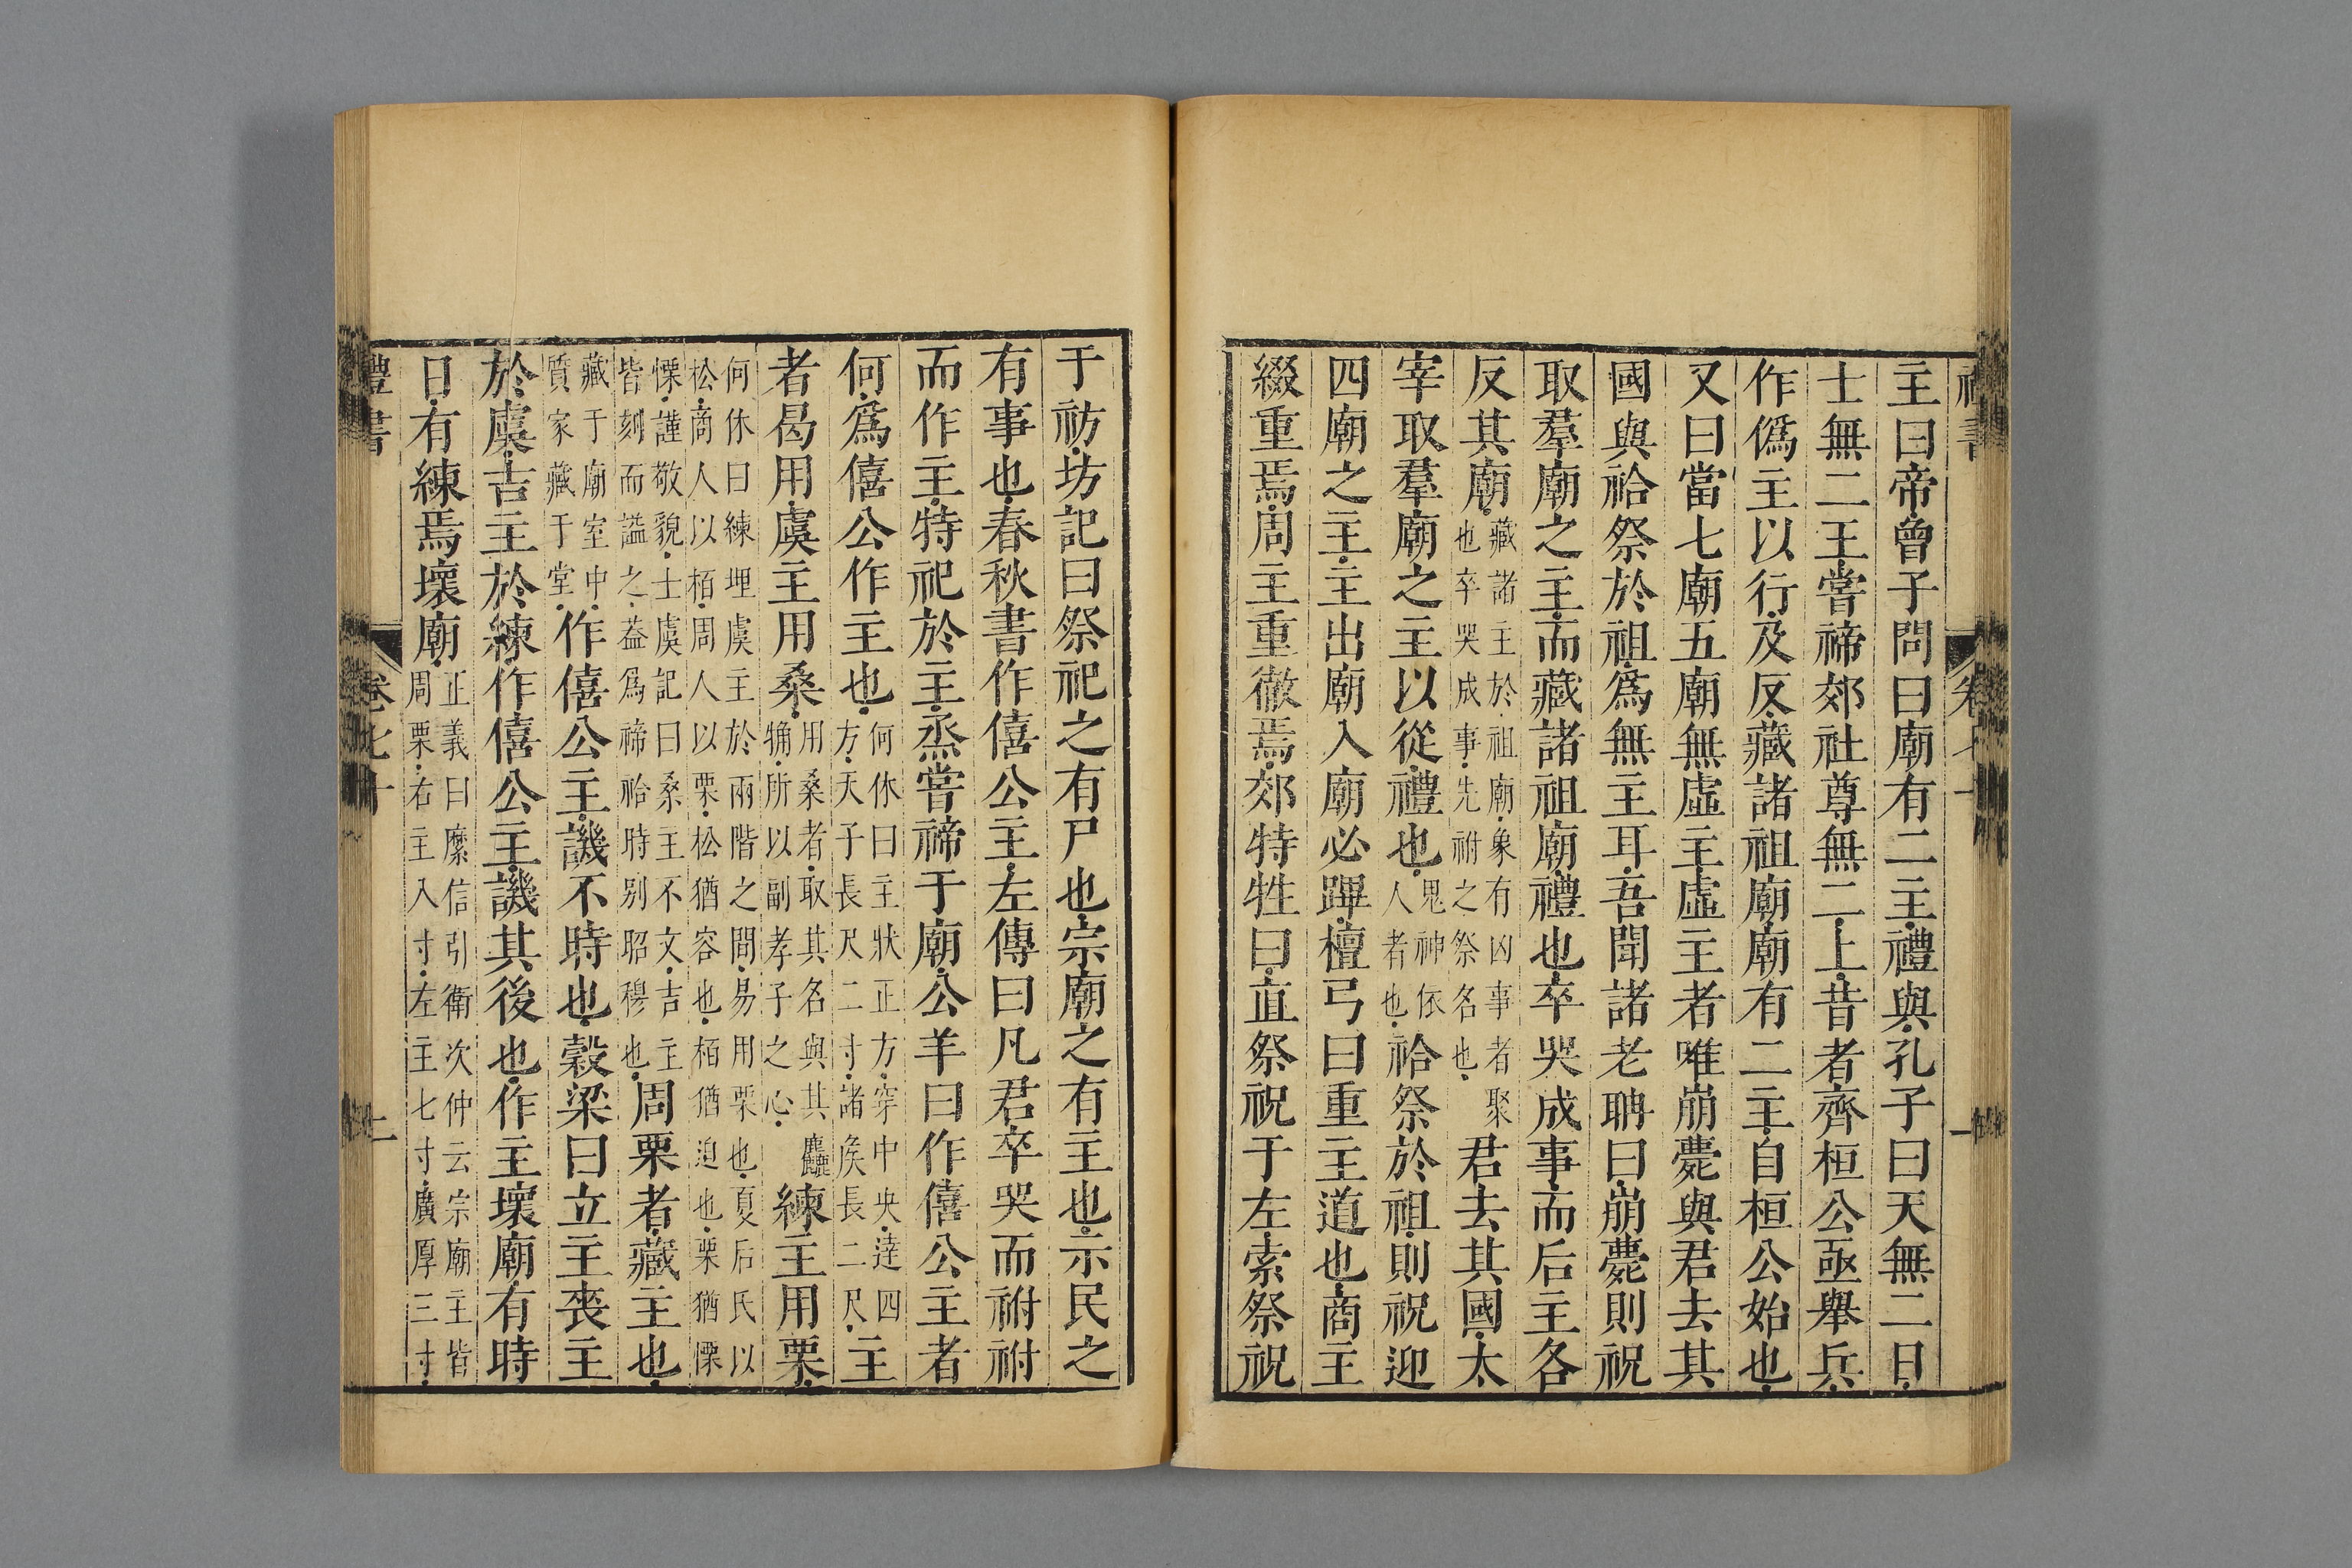 主曰帝曾子問曰廟有二主禮與孔子曰天無二日
士無二王嘗禘郊社尊無二上昔者齊桓公亟舉兵
作僞主以行及反藏諸祖廟廟有二主自桓公始也
又曰當七廟五廟無虛主虛主者唯崩薨與君去其
國與祫祭於祖爲無主耳吾聞諸老聃曰崩薨則祝
取羣廟之主而藏諸祖廟禮也卒哭成事而后主各
反其廟藏諸主於祖廟象有凶事者聚也卒哭成事先祔之祭名也君去其國太
宰取羣廟之主以從禮也鬼神依人者也祫祭於祖則祝迎
四廟之主主出廟入廟必蹕檀弓曰重主道也商主
綴重焉周主重徹焉郊特牲曰直祭祝于左索祭祝
于祊坊記曰祭祀之有尸也宗廟之有主也示民之
有事也春秋書作僖公主左傳曰凡君卒哭而祔祔
而作主特祀於主烝嘗禘于廟公羊曰作僖公主者
何爲僖公作主也何休曰主狀正方穿中央達四方天子長尺二寸諸侯長二尺主
者曷用虞主用桑用桑者取其名與其麤觕所以副孝子之心練主用栗
何休曰練埋虞主於兩階之間易用栗也夏后氏以
松商人以栢周人以栗松猶容也栢猶迫也栗猶慄
慄謹敬貌士虞記曰桑主不文吉主皆刻而謚之葢爲禘祫時别昭穆也周栗者藏主也
藏于廟室中質家藏于堂作僖公主譏不時也穀梁曰立主喪主
於虞吉主於練作僖公主譏其後也作主壞廟有時
日有練焉壞廟正義曰麋信引衛次仲云宗廟主皆周栗右主入寸左主七寸廣厚三寸
禮書 卷七十 二